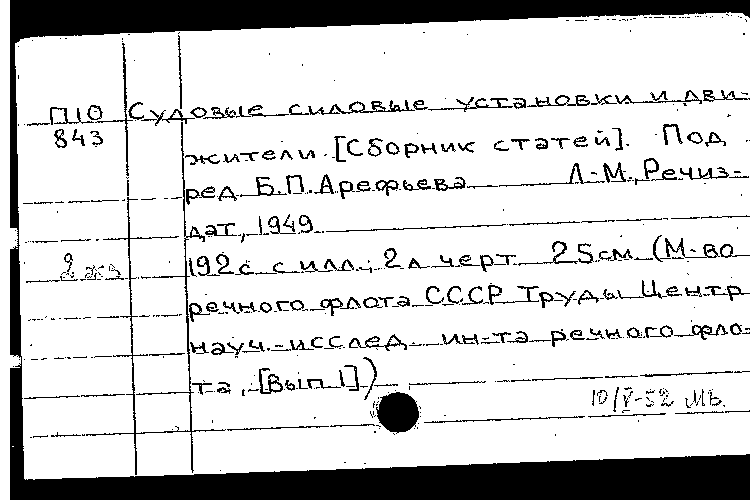 П10 Судовые силовые установки и дви-
843
жители. [Сборник статей]. Под
ред. Б.П.Арефьева Л.-М., Речиз-
дат, 1949
2 экз 192с с илл.; 2л черт. 25см. (М-во
речного флота СССР Труды Центр
науч.-исслед. ин-та речного фло-
та, [Вып 1])
10/V-52 МБ.